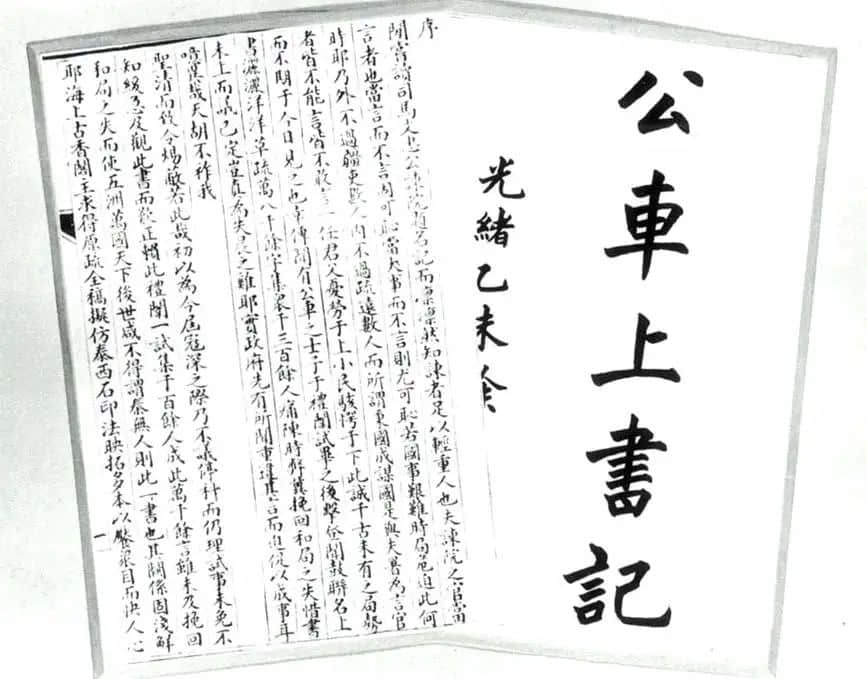 公車上書記
光緒乙未
序
聞嘗讀司馬文忠公諫院題名記而凜凜然知諫者足以輕重人也夫諫院之官當
言者也當言而不言固可恥當大事而不言則尤可恥若國事艱難時局危迫此何
時耶乃外不過疆吏數人內不過疏遠數人而所謂秉國成謀國是與夫署為言官
者皆不能言皆不敢言一任君父憂勞于上小民駭愕于下此誠千古未有之局勢
而不期于今日見之也幸傳聞有公車之士子于禮闈試畢之後擊登聞鼓聯名上
書灑灑洋洋草疏萬八千餘字集眾千三百餘人痛陳時弊冀挽回和局之失惜書
未上而議已定豈真為失之難耶實政府先有所聞重違其言而迫促以成事耳
嗚呼噫哉天胡不祚我
聖清而致令竭蹶若此哉初以為今屆寇深之際乃不議停科而仍理試事未免不
知緩急及觀此書而歎正賴此禮闈一試集千百餘人成此萬千餘言雖未及挽回
和局之失而使五洲萬國天下後世咸不得謂秦無人則此一書也其關係固淺鮮
耶海上古香閣主求得原疏全稿擬仿泰西石印法映拓多本以餍眾目而快人心
一